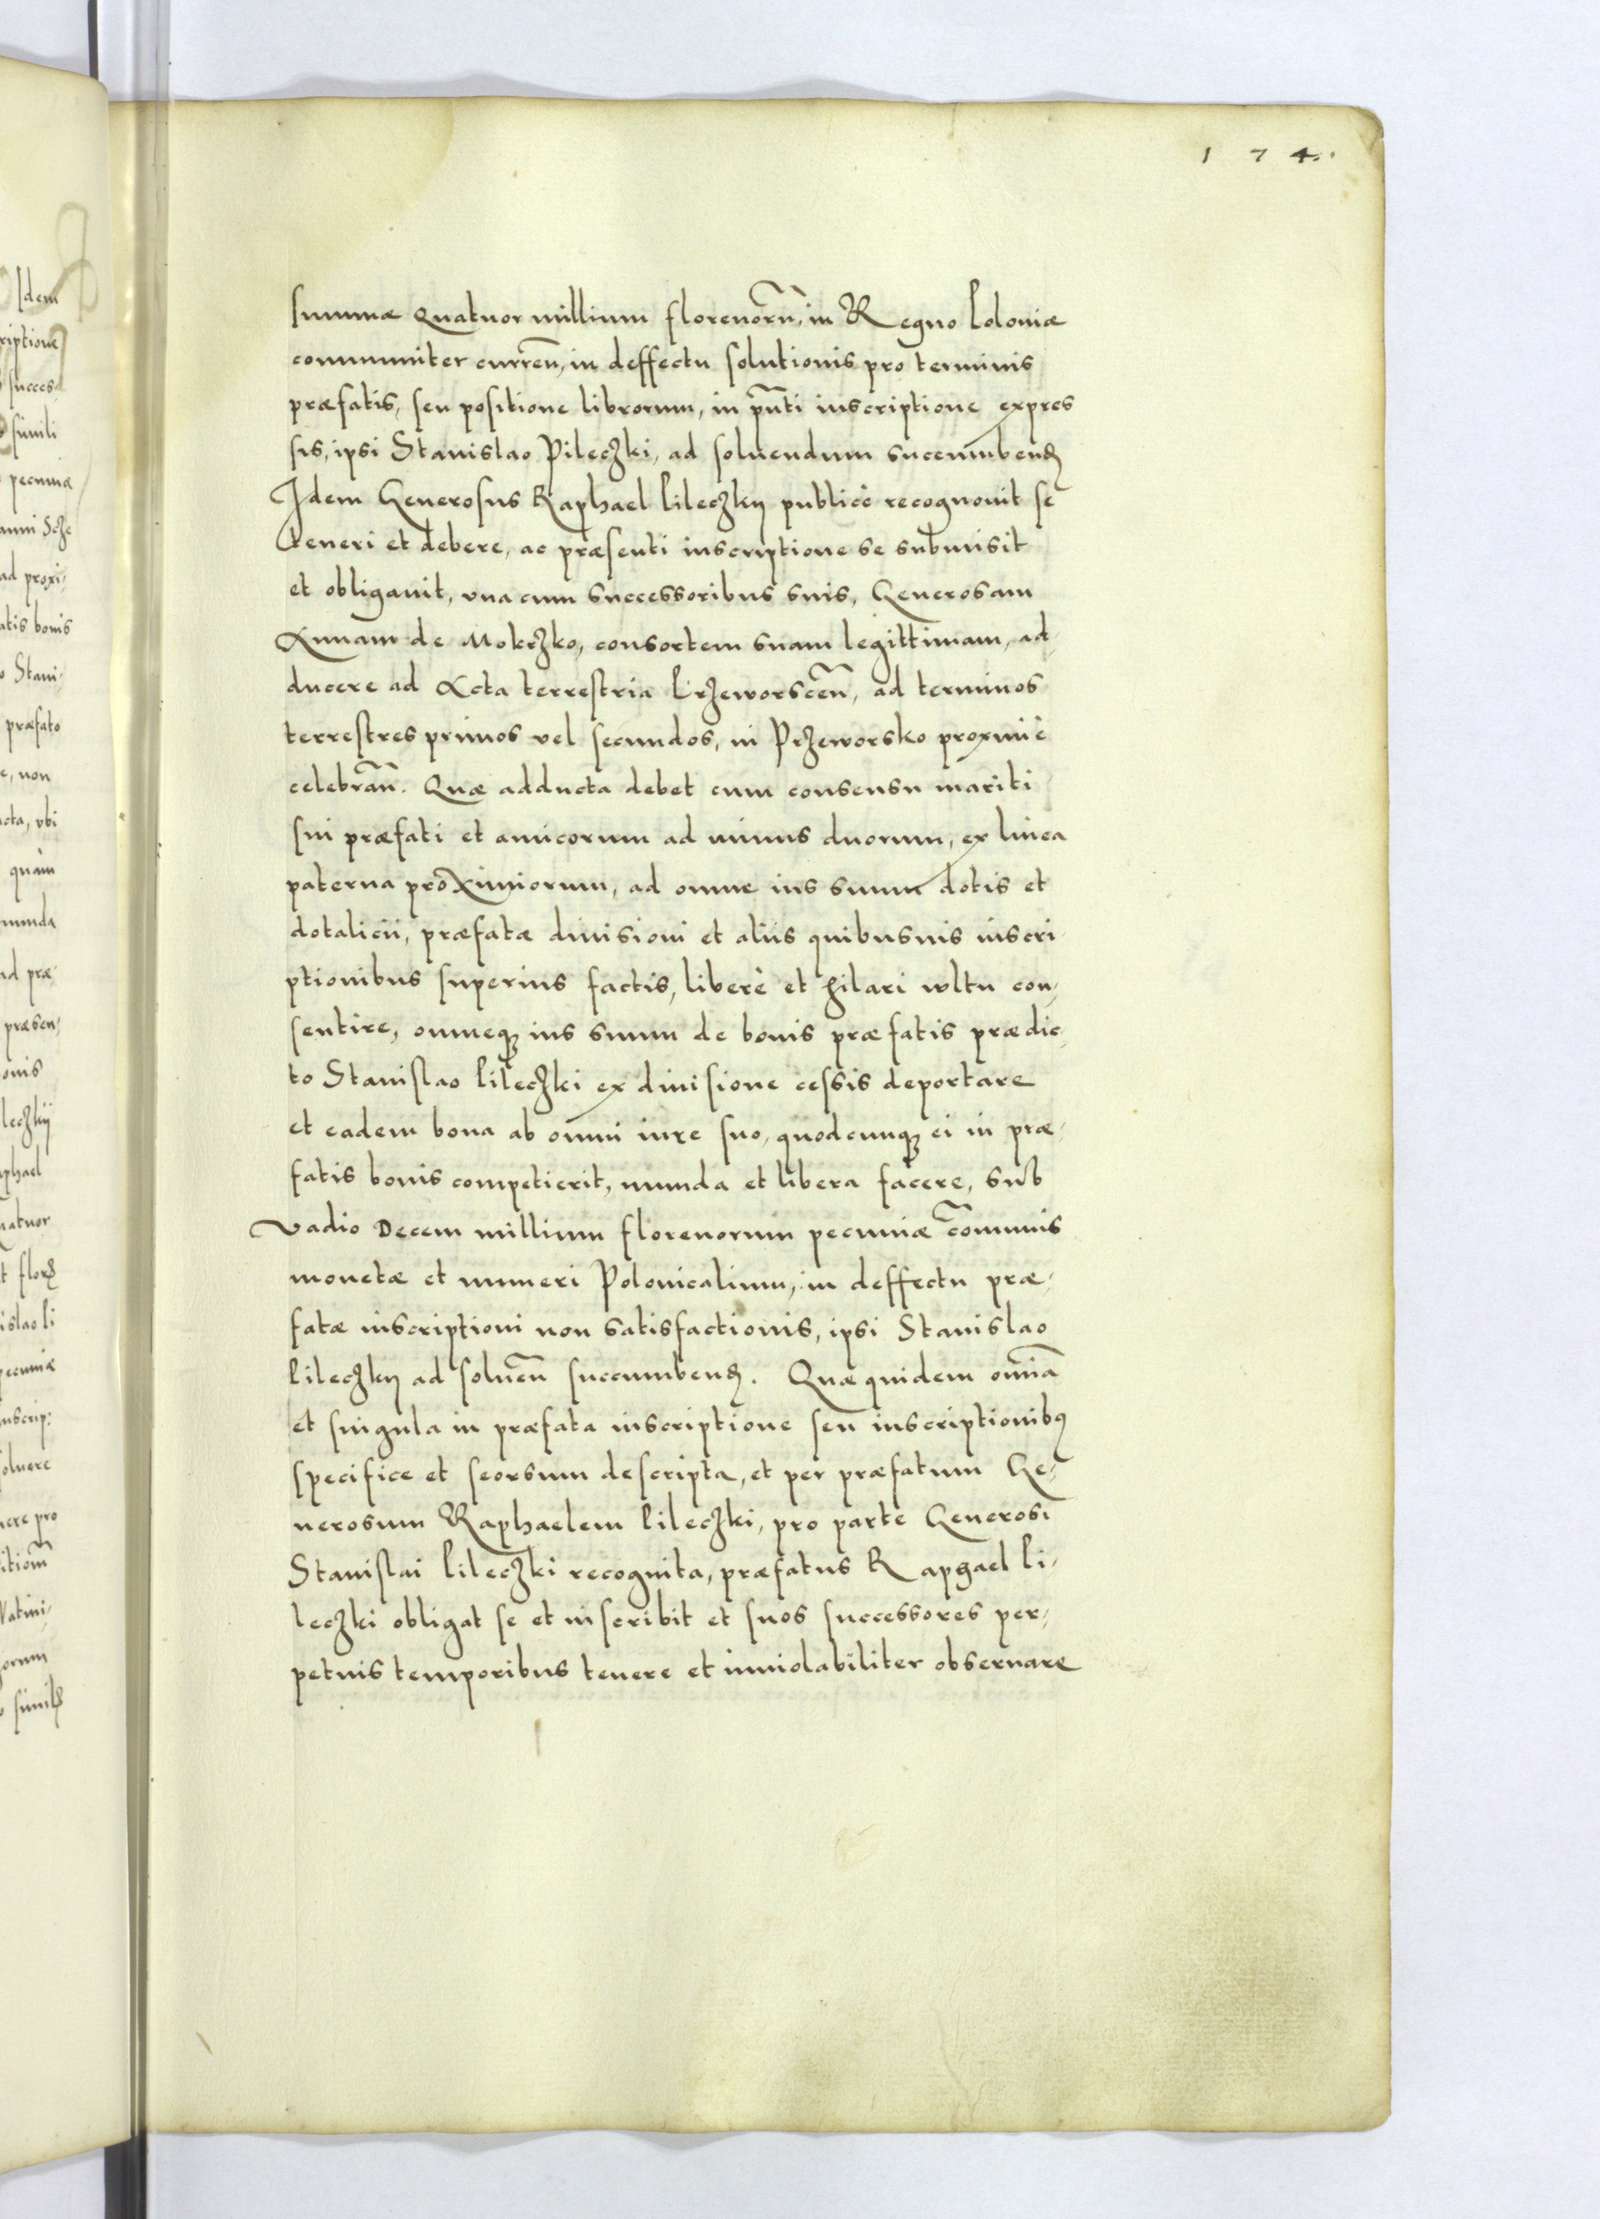 174.
summæ Quatuor millium florenorũ, in Regno Poloniæ
communiter curreñ, in deffectu solutionis pro terminis
præfatis, seu positione librorum, in pñti inscriptione expres
sis, ipsi Stanislao Pileczki, ad soluendum succumbenđ
Idem Generosus Raphael Pileczky publicè recognouit se
teneri et debere, ac præsenti inscriptione se submisit
et obligauit, vna cum successoribus suis, Generosam
Annam de Mokrzko, consortem suam legittimam, ad,
ducere ad Acta terrestria Przeworsceñ, ad terminos
terrestres primos vel secundos, in Przeworsko proximè
celebrañ. Quæ adducta debet cum consensu mariti
sui præfati et amicorum ad minus duorum, ex linea
paterna proximiorum, ad omne ius suum dotis et
dotalicii, præfatæ diuisioni et aliis quibusuis inscri,
ptionibus superius factis, liberè et hilari wltu con,
sentire, omneq; ius suum de bonis præfatis prædic,
to Stanislao Pileczki ex diuisione cessis deportare
et eadem bona ab omni iure suo, quodcunq; ei in præ,
fatis bonis competierit, munda et libera facere, sub
vadio Decem millium florenorum pecuniæ cõmunis
monetæ et numeri Polonicalium, in deffectu præ,
fatæ inscriptioni non satisfactionis, ipsi Stanislao
Pileczky ad solueñ succumbenđ. Quæ quidem omnia
et singula in præfata inscriptione seu inscriptionibꝰ
specifice et seorsum descripta, et per præfatum Ge,
nerosum Raphaelem Pileczki, pro parte Generosi
Stanislai Pileczki recognita, præfatus Raphael Pi,
leczki obligat se et inscribit et suos successores per,
petuis temporibus tenere et inuiolabiliter obseruare